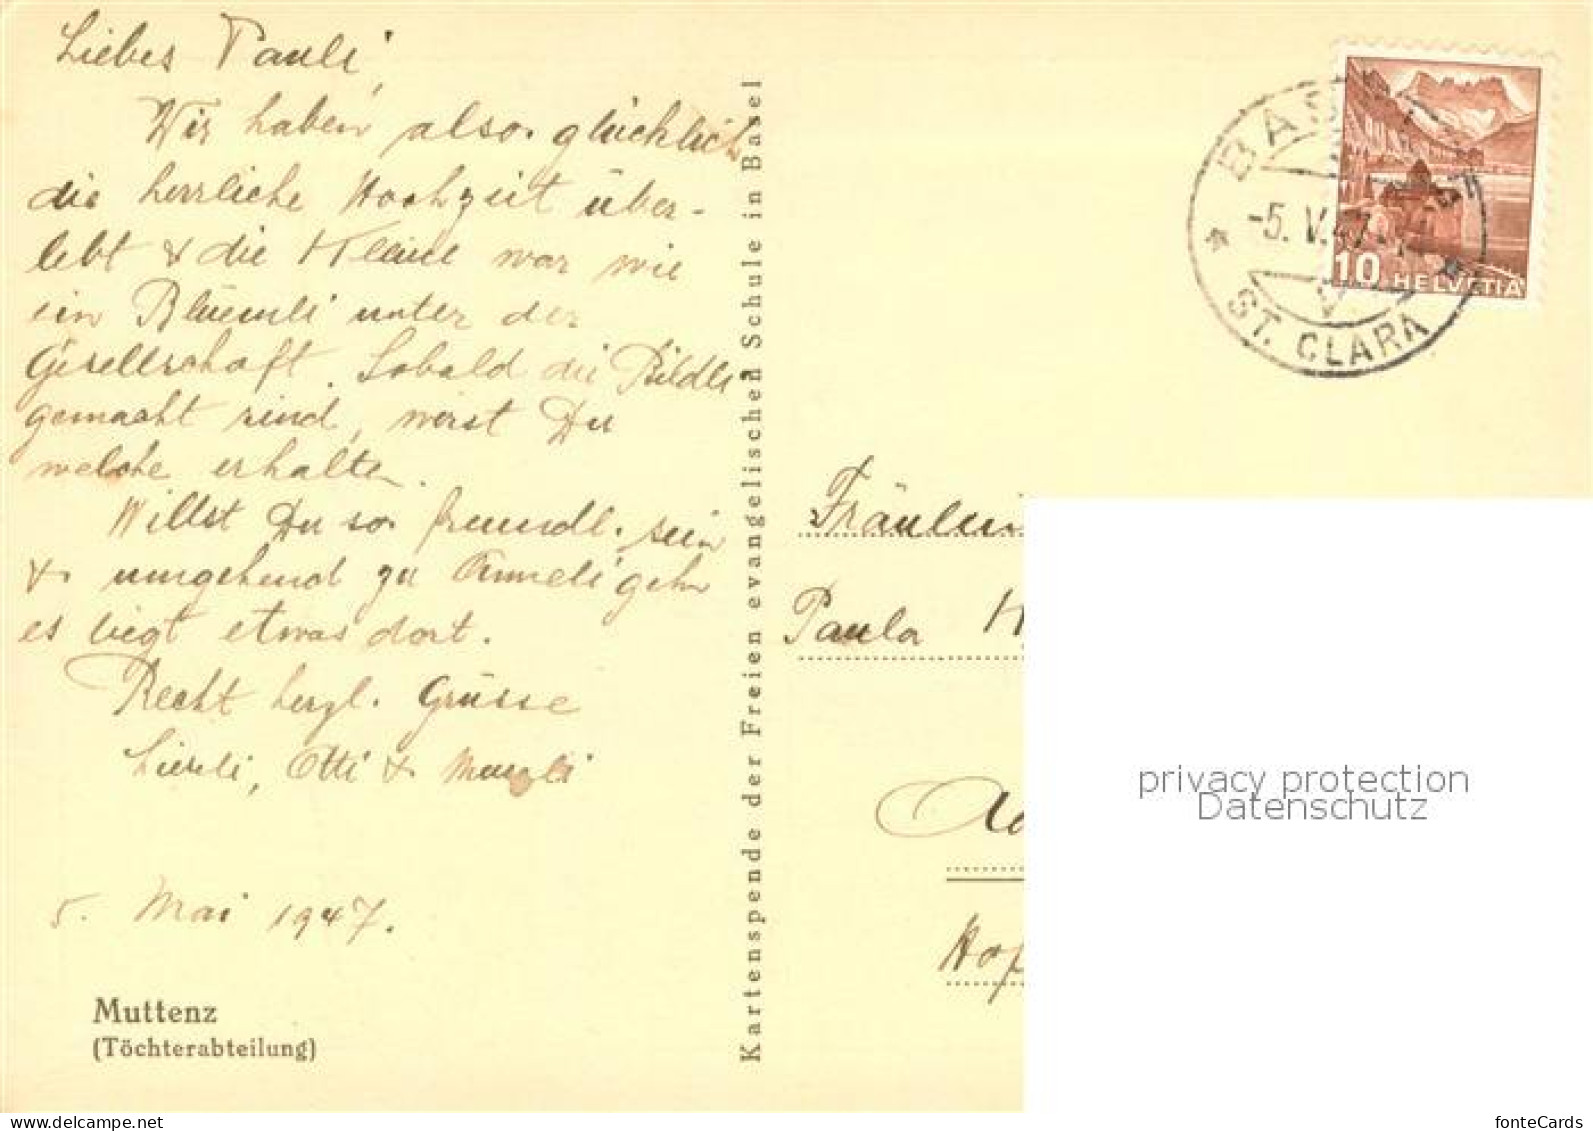 Liebes Pauli,
Wir haben also glücklich
die herrliche Hochzeit über-
lebt & die Kleine war wie
ein Blüemli unter der
Gesellschaft. Sobald die Bildli
gemacht sind, wirst Du
welche erhalten.
Willst Du so freundl. sein
& umgehend zu Anneli gehn
es liegt etwas dort.
Recht herzl. Grüsse
Liesli, Otti &
5. Mai 1947.
Muttenz
(Töchterabteilung)
Kartenspende der Freien evangelischen Schule in Basel
BAS
-5. V. 47
ST. CLARA
10 HELVETIA
Fräulein
Paula H
privacy protection
Datenschutz
Muttenz
fonteCards